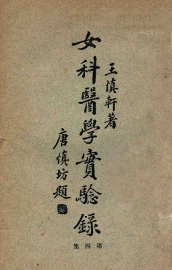 王慎軒著
女科醫學實驗錄
唐慎坊題
集四第